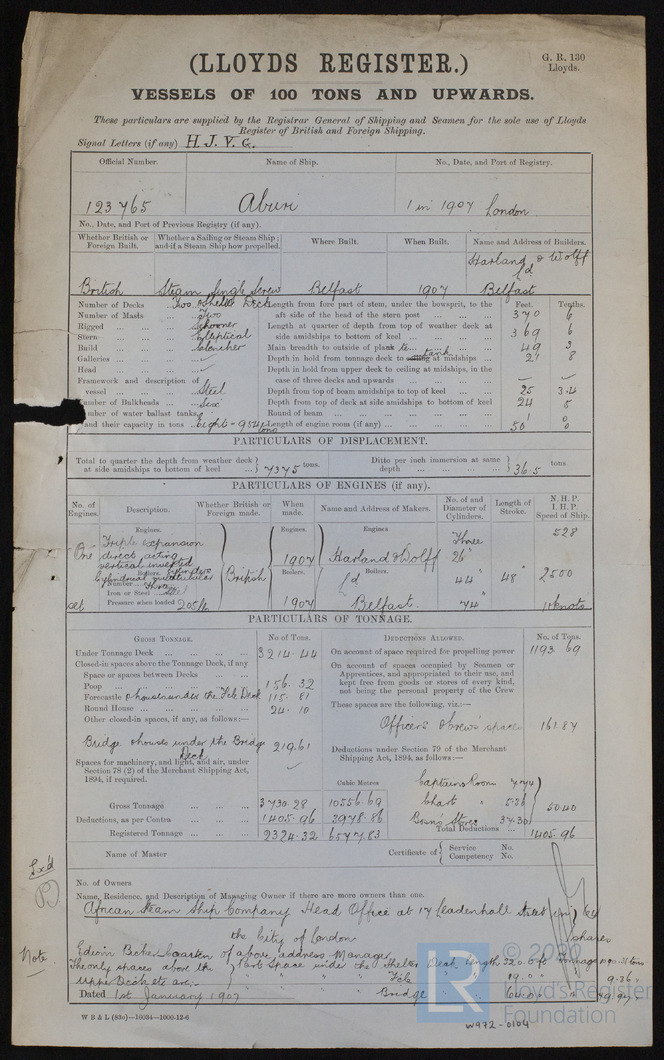 (LLOYDS REGISTER.)
G. R. 130
Lloyds.
VESSELS OF 100 TONS AND UPWARDS.
These particulars are supplied by the Registrar General of Shipping and Seamen for the sole use of Lloyds
Register of British and Foreign Shipping.
Signal Letters (if any) H. J. V. G.
Official Number. Name of Ship. No., Date, and Port of Registry.
123765 Aburi 1 in 1907 London
No., Date, and Port of Previous Registry (if any).
Whether British or Foreign Built. Whether a Sailing or Steam Ship; and if a Steam Ship how propelled. Where Built. When Built. Name and Address of Builders.
British Steam Single Screw Belfast 1907 Harland & Wolff Ld Belfast
Number of Decks ... Two & Shelter Deck
Number of Masts ... Two
Rigged ... Schooner
Stern ... Elliptical
Build ... Clencher
Galleries ...
Head ...
Framework and description of
vessel ... Steel
Number of Bulkheads ... Six
Number of water ballast tanks,
and their capacity in tons Eight - 954 tons
Feet. Tenths.
Length from fore part of stem, under the bowsprit, to the
aft side of the head of the stern post ... 370 6
Length at quarter of depth from top of weather deck at
side amidships to bottom of keel ... 369 6
Main breadth to outside of plank ... 49 3
Depth in hold from tonnage deck to ceiling at midships ... tank 21 8
Depth in hold from upper deck to ceiling at midships, in the
case of three decks and upwards ...
Depth from top of beam amidships to top of keel ... 25 34
Depth from top of deck at side amidships to bottom of keel 24 5
Round of beam ... 1 0
Length of engine room (if any) ... 50 0
PARTICULARS OF DISPLACEMENT.
Total to quarter the depth from weather deck at side amidships to bottom of keel ... 7375 tons.
Ditto per inch immersion at same depth ... 36.5 tons
PARTICULARS OF ENGINES (if any).
No. of Engines. Description. Whether British or Foreign made. When made. Name and Address of Makers. No. of and Diameter of Cylinders. Length of Stroke. N. H. P. I. H. P. Speed of Ship.
One set
Engines.
Triple expansion
direct acting
vertical inverted
cylinders
Boilers.
Cylindrical multitubular
Number Three
Iron or Steel Steel
Pressure when loaded 205 lb
British
Engines. 1907
Boilers. 1907
Engines
Harland & Wolff
Boilers.
Ld
Belfast.
Three
26"
44"
74"
48"
528
2500
11 knots
PARTICULARS OF TONNAGE.
GROSS TONNAGE. No of Tons.
Under Tonnage Deck ... 3214.44
Closed-in spaces above the Tonnage Deck, if any
Space or spaces between Decks ...
Poop ... 156.32
Forecastle & houses under the Fcle Deck 115.81
Round House ... 24.10
Other closed-in spaces, if any, as follows:—
Bridge & houses under the Bridge Deck 219.61
Spaces for machinery, and light, and air, under
Section 78 (2) of the Merchant Shipping Act,
1894, if required.
Cubic Metres
Gross Tonnage ... 3730.28 10556.69
Deductions, as per Contra ... 1405.96 3978.86
Registered Tonnage ... 2324.32 6577.83
DEDUCTIONS ALLOWED. No. of Tons.
On account of space required for propelling power 1193.69
On account of spaces occupied by Seamen or
Apprentices, and appropriated to their use, and
kept free from goods or stores of every kind,
not being the personal property of the Crew
These spaces are the following, viz.:—
Officers & crews' spaces 161.87
Deductions under Section 79 of the Merchant
Shipping Act, 1894, as follows:—
Captains Room 7.74
Chart " 5.36
Bosn's Store 37.30
50.40
Total Deductions ... 1405.96
Name of Master
Certificate of Service No. Competency No.
No. of Owners
Name, Residence, and Description of Managing Owner if there are more owners than one.
African Steam Ship Company Head Office at 17 Leadenhall Street in
the City of London
shares
Edwin of above address Manager
The only spaces above the
Upper Deck etc are:-
Space under the Shelter Deck Length 320.0 ft Tonnage
Fcle " " 19.0 " " 9.36
Bridge " " 64.0 "
Dated 1st January 1907
Note
W B & L (83o)—16034—1000-12-6
W972-0104
LR
© 2020
Lloyd's Register
Foundation